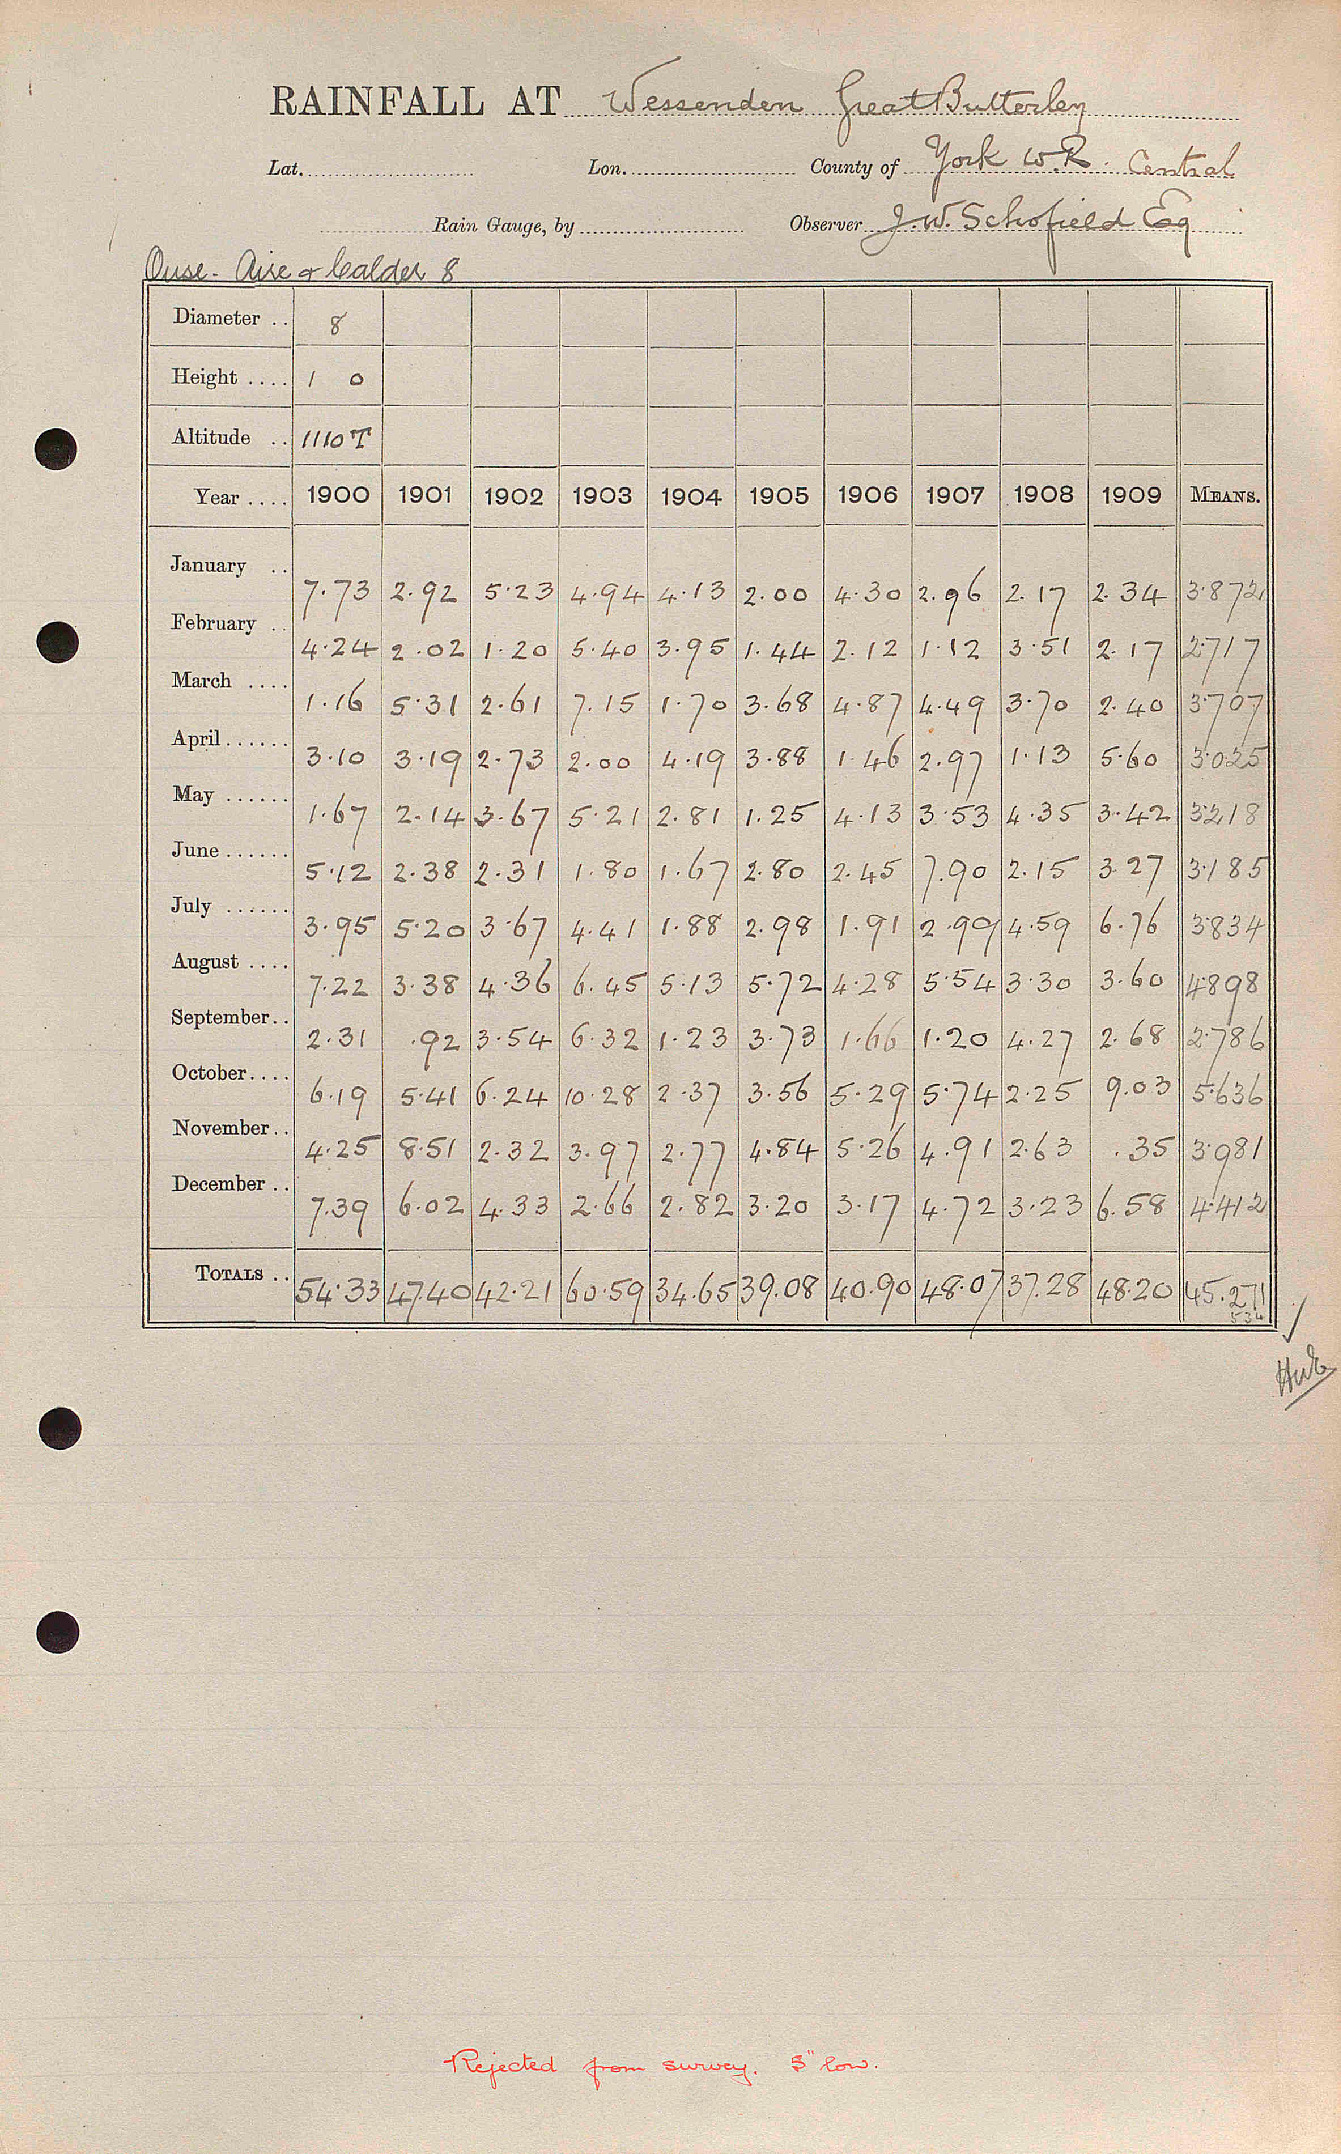 RAINFALL AT Wessenden Great Butterley
Lat. Lon. County of York W.R. Central
Rain Gauge, by Observer J.W. Schofield Esq
Ouse - Aire & Calder 8
Diameter .. 8
Height .... 1 0
Altitude .. 1110 T
Year .... 1900 1901 1902 1903 1904 1905 1906 1907 1908 1909 MEANS.
January .. 7.73 2.92 5.23 4.94 4.13 2.00 4.30 2.96 2.17 2.34 3.872
February .. 4.24 2.02 1.20 5.40 3.95 1.44 2.12 1.12 3.51 2.17 2.717
March .... 1.16 5.31 2.61 7.15 1.70 3.68 4.87 4.49 3.70 2.40 3.707
April...... 3.10 3.19 2.73 2.00 4.19 3.88 1.46 2.97 1.13 5.60 3.025
May ...... 1.67 2.14 3.67 5.21 2.81 1.25 4.13 3.53 4.35 3.42 3.218
June...... 5.12 2.38 2.31 1.80 1.67 2.80 2.45 7.90 2.15 3.27 3.185
July ...... 3.95 5.20 3.67 4.41 1.88 2.98 1.91 2.99 4.59 6.76 3.834
August .... 7.22 3.38 4.36 6.45 5.13 5.72 4.28 5.54 3.30 3.60 4.898
September.. 2.31 .92 3.54 6.32 1.23 3.73 1.66 1.20 4.27 2.68 2.786
October.... 6.19 5.41 6.24 10.28 2.37 3.56 5.29 5.74 2.25 9.03 5.636
November.. 4.25 8.51 2.32 3.97 2.77 4.84 5.26 4.91 2.63 .35 3.981
December .. 7.39 6.02 4.33 2.66 2.82 3.20 3.17 4.72 3.23 6.58 4.412
TOTALS .. 54.33 47.40 42.21 60.59 34.65 39.08 40.90 48.07 37.28 48.20 45.271
534
Rejected from survey. 5" low.